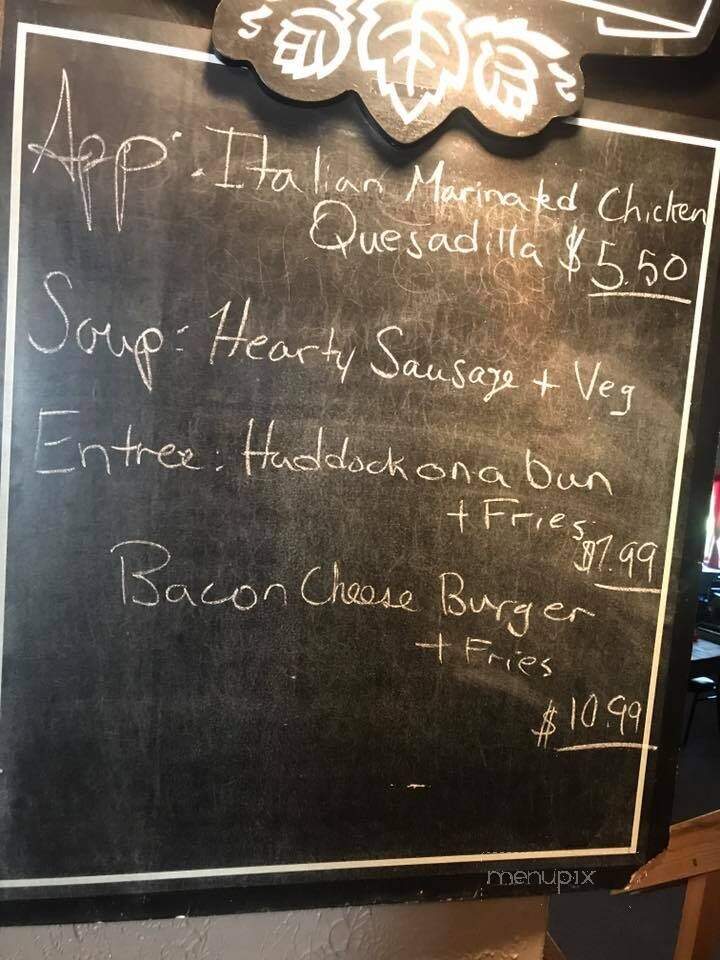 App: Italian Marinated Chicken
Quesadilla $5.50
Soup: Hearty Sausage + Veg
Entree: Haddock on a bun
+ Fries
$7.99
Bacon Cheese Burger
+ Fries
$10.99
menupix